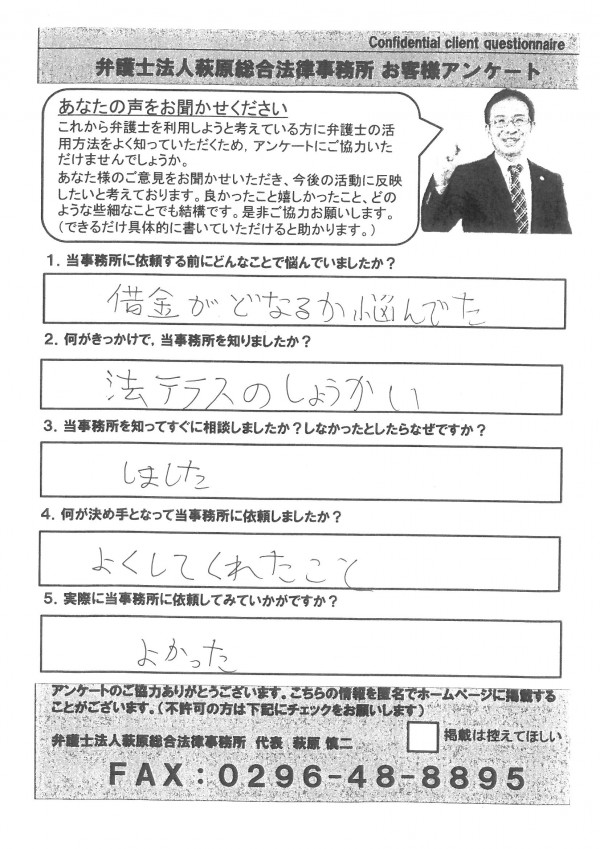 Confidential client questionnaire
弁護士法人萩原総合法律事務所 お客様アンケート
あなたの声をお聞かせください
これから弁護士を利用しようと考えている方に弁護士の活
用方法をよく知っていただくため，アンケートにご協力いた
だけませんでしょうか。
あなた様のご意見をお聞かせいただき、今後の活動に反映
したいと考えております。良かったこと嬉しかったこと、どの
ような些細なことでも結構です。是非ご協力お願いします。
（できるだけ具体的に書いていただけると助かります。）
１．当事務所に依頼する前にどんなことで悩んでいましたか？
借金がどなるか悩んでた
２．何がきっかけで，当事務所を知りましたか？
法テラスのしょうかい
３．当事務所を知ってすぐに相談しましたか？しなかったとしたらなぜですか？
しました
４．何が決め手となって当事務所に依頼しましたか？
よくしてくれたこと
５．実際に当事務所に依頼してみていかがですか？
よかった
アンケートのご協力ありがとうございます。こちらの情報を匿名でホームページに掲載する
ことがございます。（不許可の方は下記にチェックをお願いします）
弁護士法人萩原総合法律事務所 代表 萩原 慎二
掲載は控えてほしい
FAX：0296-48-8895